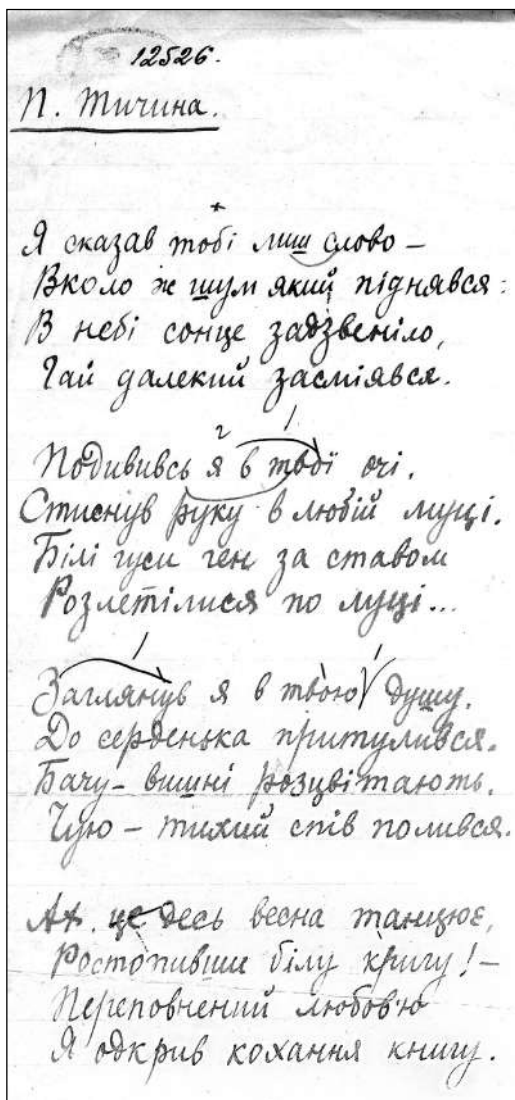 12526.
П. Тичина.
Я сказав тобі лиш слово –
Вколо ж шум який піднявся:
В небі сонце задзвеніло,
Гай далекий засміявся.
Подививсь я в твої очі.
Стиснув руку в любій муці.
Білі гуси ген за ставом
Розлетілися по луці...
Заглянув я в твою душу.
До серденька притулився.
Бачу – вишні розцвітають.
Чую – тихий спів полився.
Ах. це десь весна танцює,
Ростопивши білу кригу! –
Переповнений любов'ю
Я одкрив кохання книгу.